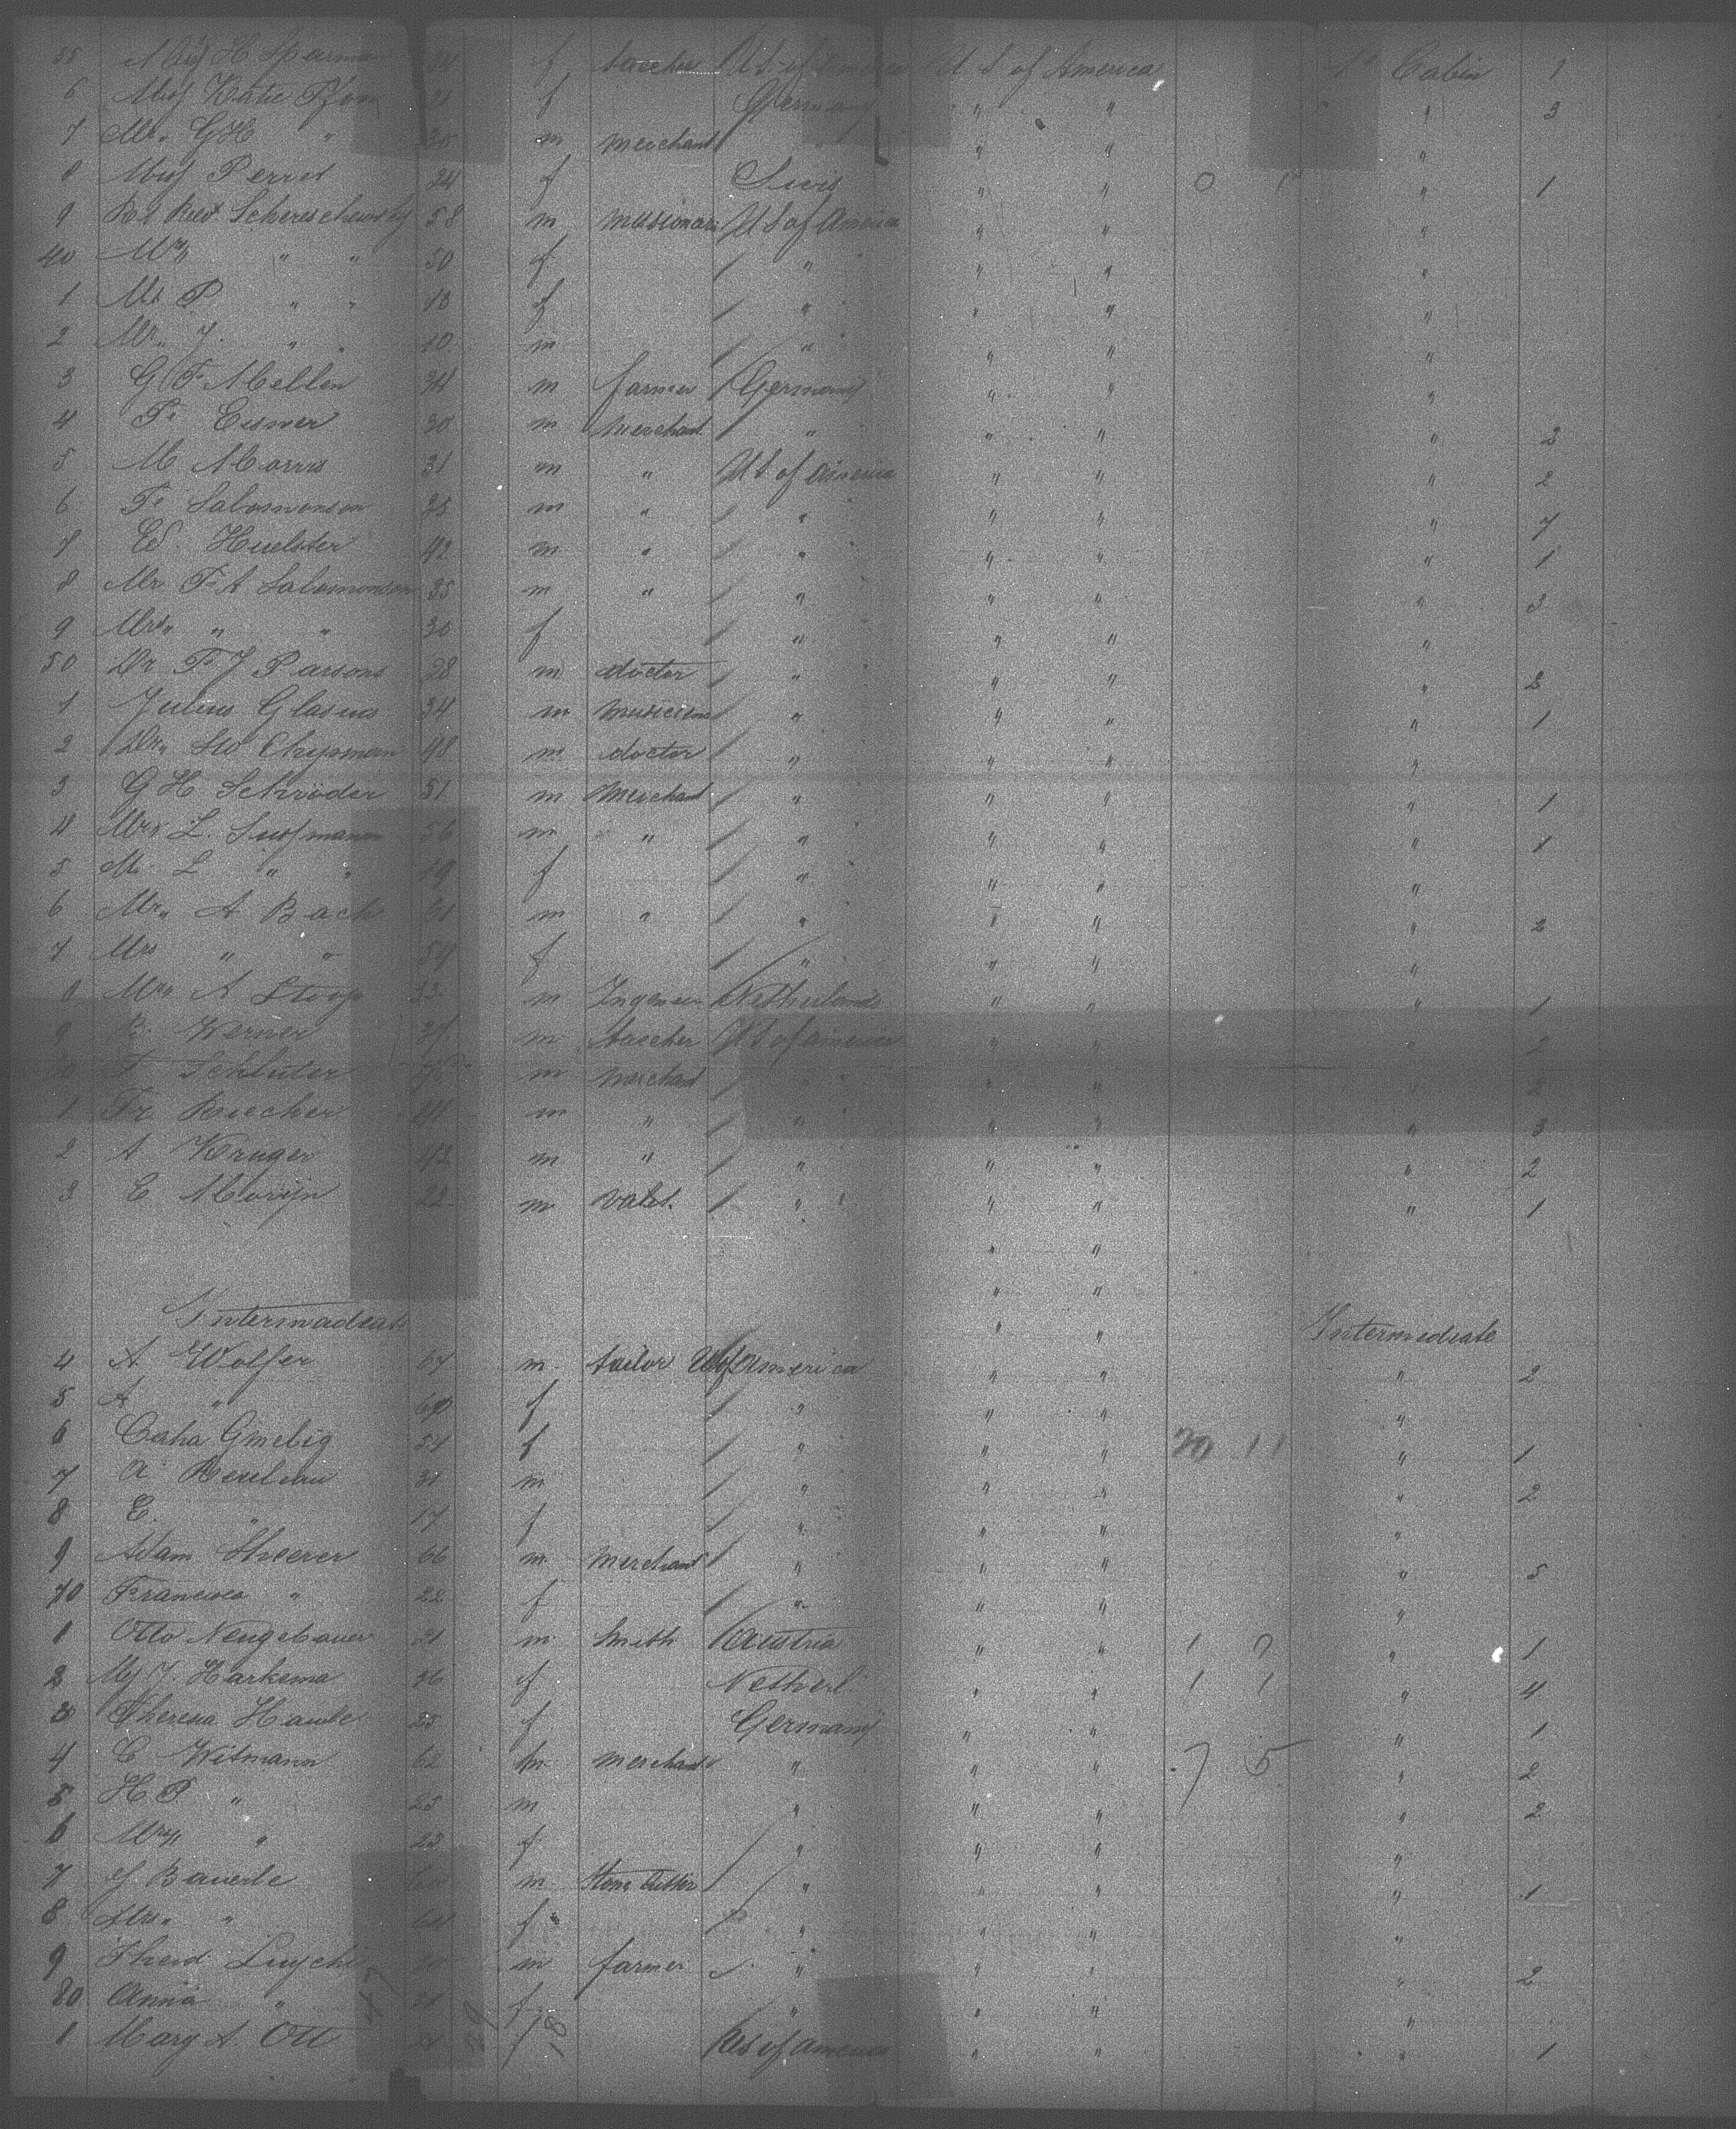 35 Miss H Sparman 24 f teacher U S of America U S of America 1st Cabin 1
6 Miss Katie Pfom 21 f Germany " " " 3
7 Mr. G H " m merchant " " " "
8 Miss Perret 24 f Swis " " 0 1 " 1
9 Rt Revd Schereschewsky 58 m missionari U S of America " " "
40 Mrs " " 50 f " " " "
1 Ms P " " 13 f " " " "
2 Mr. J. " " 10 m " " " "
3 G F Mellin 34 m farmer Germany " " "
4 Fr Eisner 30 m merchant " " " " 2
5 M Morris 31 m " U S of America " " " 2
6 Fr Salomonson 35 m " " " " " 7
7 Ed. Huelster 42 m " " " " " 1
8 Mr F A Salomonson 35 m " " " " " 3
9 Mrs " " 30 f " " " "
50 Dr F J Parsons 28 m doctor " " " " 2
1 Julius Glasius 34 m musician " " " " 1
2 Dr. Chapman 48 m doctor " " " "
3 G H Schröder 51 m merchant " " " " 1
4 Mr L. Susfmann 56 m " " " " " 1
5 M. L " " 19 f " " " "
6 Mr. A Bach 61 m " " " " " 2
7 Mrs " " 54 f " " " "
8 Mr A Stoop 33 m Ingenieur Netherlands " " " 1
9 Werner m teacher U S of America " " " 2
60 F Schluter m merchant " " " " 2
1 Fr Bruecher m " " " " " 3
2 A Kruger 42 m " " " " " 2
3 E Morijn 22 m valet. " " " " 1
" "
" "
Intermadeate " " Intermediate
4 A. Wolfer 67 m tailor U S of America " " " 2
5 A " f " " " "
6 51 f " " " 20 11 " 1
7 31 m " " " " 2
8 E. " 17 f " " " "
9 Adam Sheerer 66 m merchant " " " " 5
70 Francisca " 22 f " " " "
1 Otto Neugebauer 21 m smith Austria " " 1 " 1
2 J. Harkema 26 f Netherl. " " 1 1 " 4
3 Theresa Haule 25 f Germany " " " 1
4 C Witmann 62 m merchant " " " 7 5 " 2
5 H P. " 25 m " " " " 2
6 Mrs " 23 f " " " "
7 J Bauerle m Stone Cutter " " " " 1
8 Mrs. " f " " " "
9 m farmer " " " " 2
80 Anna " f " " " "
1 Mary A. Ott f US of America " " " 1